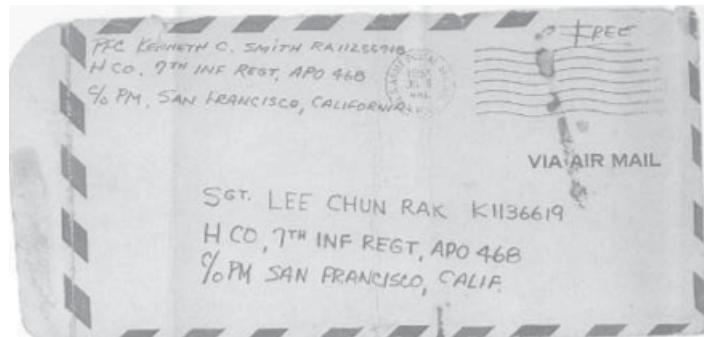 FREE
PFC KENNETH C. SMITH RA11255918
H CO, 7TH INF REGT, APO 468
C/O PM, SAN FRANCISCO, CALIFORNIA
VIA AIR MAIL
SGT. LEE CHUN RAK K1136619
H CO, 7TH INF REGT, APO 468
C/O PM SAN FRANCISCO, CALIF.